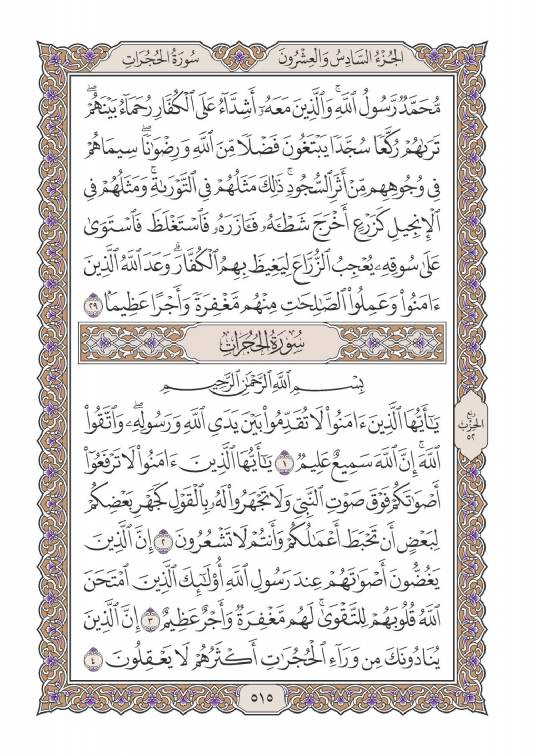 الجُزْءُ السَّادِسُ وَالعِشْرُونَ
سُورَةُ الحُجُرَاتِ
مُّحَمَّدٌ رَّسُولُ ٱللَّهِۚ وَٱلَّذِينَ مَعَهُۥٓ أَشِدَّآءُ عَلَى ٱلۡكُفَّارِ رُحَمَآءُ بَيۡنَهُمۡۖ
تَرَىٰهُمۡ رُكَّعٗا سُجَّدٗا يَبۡتَغُونَ فَضۡلٗا مِّنَ ٱللَّهِ وَرِضۡوَٰنٗاۖ سِيمَاهُمۡ
فِي وُجُوهِهِم مِّنۡ أَثَرِ ٱلسُّجُودِۚ ذَٰلِكَ مَثَلُهُمۡ فِي ٱلتَّوۡرَىٰةِۚ وَمَثَلُهُمۡ فِي
ٱلۡإِنجِيلِ كَزَرۡعٍ أَخۡرَجَ شَطۡـَٔهُۥ فَـَٔازَرَهُۥ فَٱسۡتَغۡلَظَ فَٱسۡتَوَىٰ
عَلَىٰ سُوقِهِۦ يُعۡجِبُ ٱلزُّرَّاعَ لِيَغِيظَ بِهِمُ ٱلۡكُفَّارَۗ وَعَدَ ٱللَّهُ ٱلَّذِينَ
ءَامَنُواْ وَعَمِلُواْ ٱلصَّٰلِحَٰتِ مِنۡهُم مَّغۡفِرَةٗ وَأَجۡرًا عَظِيمَۢا ٢٩
سُورَةُ الحُجُرَاتِ
بِسۡمِ ٱللَّهِ ٱلرَّحۡمَٰنِ ٱلرَّحِيمِ
يَٰٓأَيُّهَا ٱلَّذِينَ ءَامَنُواْ لَا تُقَدِّمُواْ بَيۡنَ يَدَيِ ٱللَّهِ وَرَسُولِهِۦۖ وَٱتَّقُواْ
ٱللَّهَۚ إِنَّ ٱللَّهَ سَمِيعٌ عَلِيمٞ ١ يَٰٓأَيُّهَا ٱلَّذِينَ ءَامَنُواْ لَا تَرۡفَعُوٓاْ
أَصۡوَٰتَكُمۡ فَوۡقَ صَوۡتِ ٱلنَّبِيِّ وَلَا تَجۡهَرُواْ لَهُۥ بِٱلۡقَوۡلِ كَجَهۡرِ بَعۡضِكُمۡ
لِبَعۡضٍ أَن تَحۡبَطَ أَعۡمَٰلُكُمۡ وَأَنتُمۡ لَا تَشۡعُرُونَ ٢ إِنَّ ٱلَّذِينَ
يَغُضُّونَ أَصۡوَٰتَهُمۡ عِندَ رَسُولِ ٱللَّهِ أُوْلَٰٓئِكَ ٱلَّذِينَ ٱمۡتَحَنَ
ٱللَّهُ قُلُوبَهُمۡ لِلتَّقۡوَىٰۚ لَهُم مَّغۡفِرَةٞ وَأَجۡرٌ عَظِيمٌ ٣ إِنَّ ٱلَّذِينَ
يُنَادُونَكَ مِن وَرَآءِ ٱلۡحُجُرَٰتِ أَكۡثَرُهُمۡ لَا يَعۡقِلُونَ ٤
رُبع
الحِزْب
٥٢
٥١٥